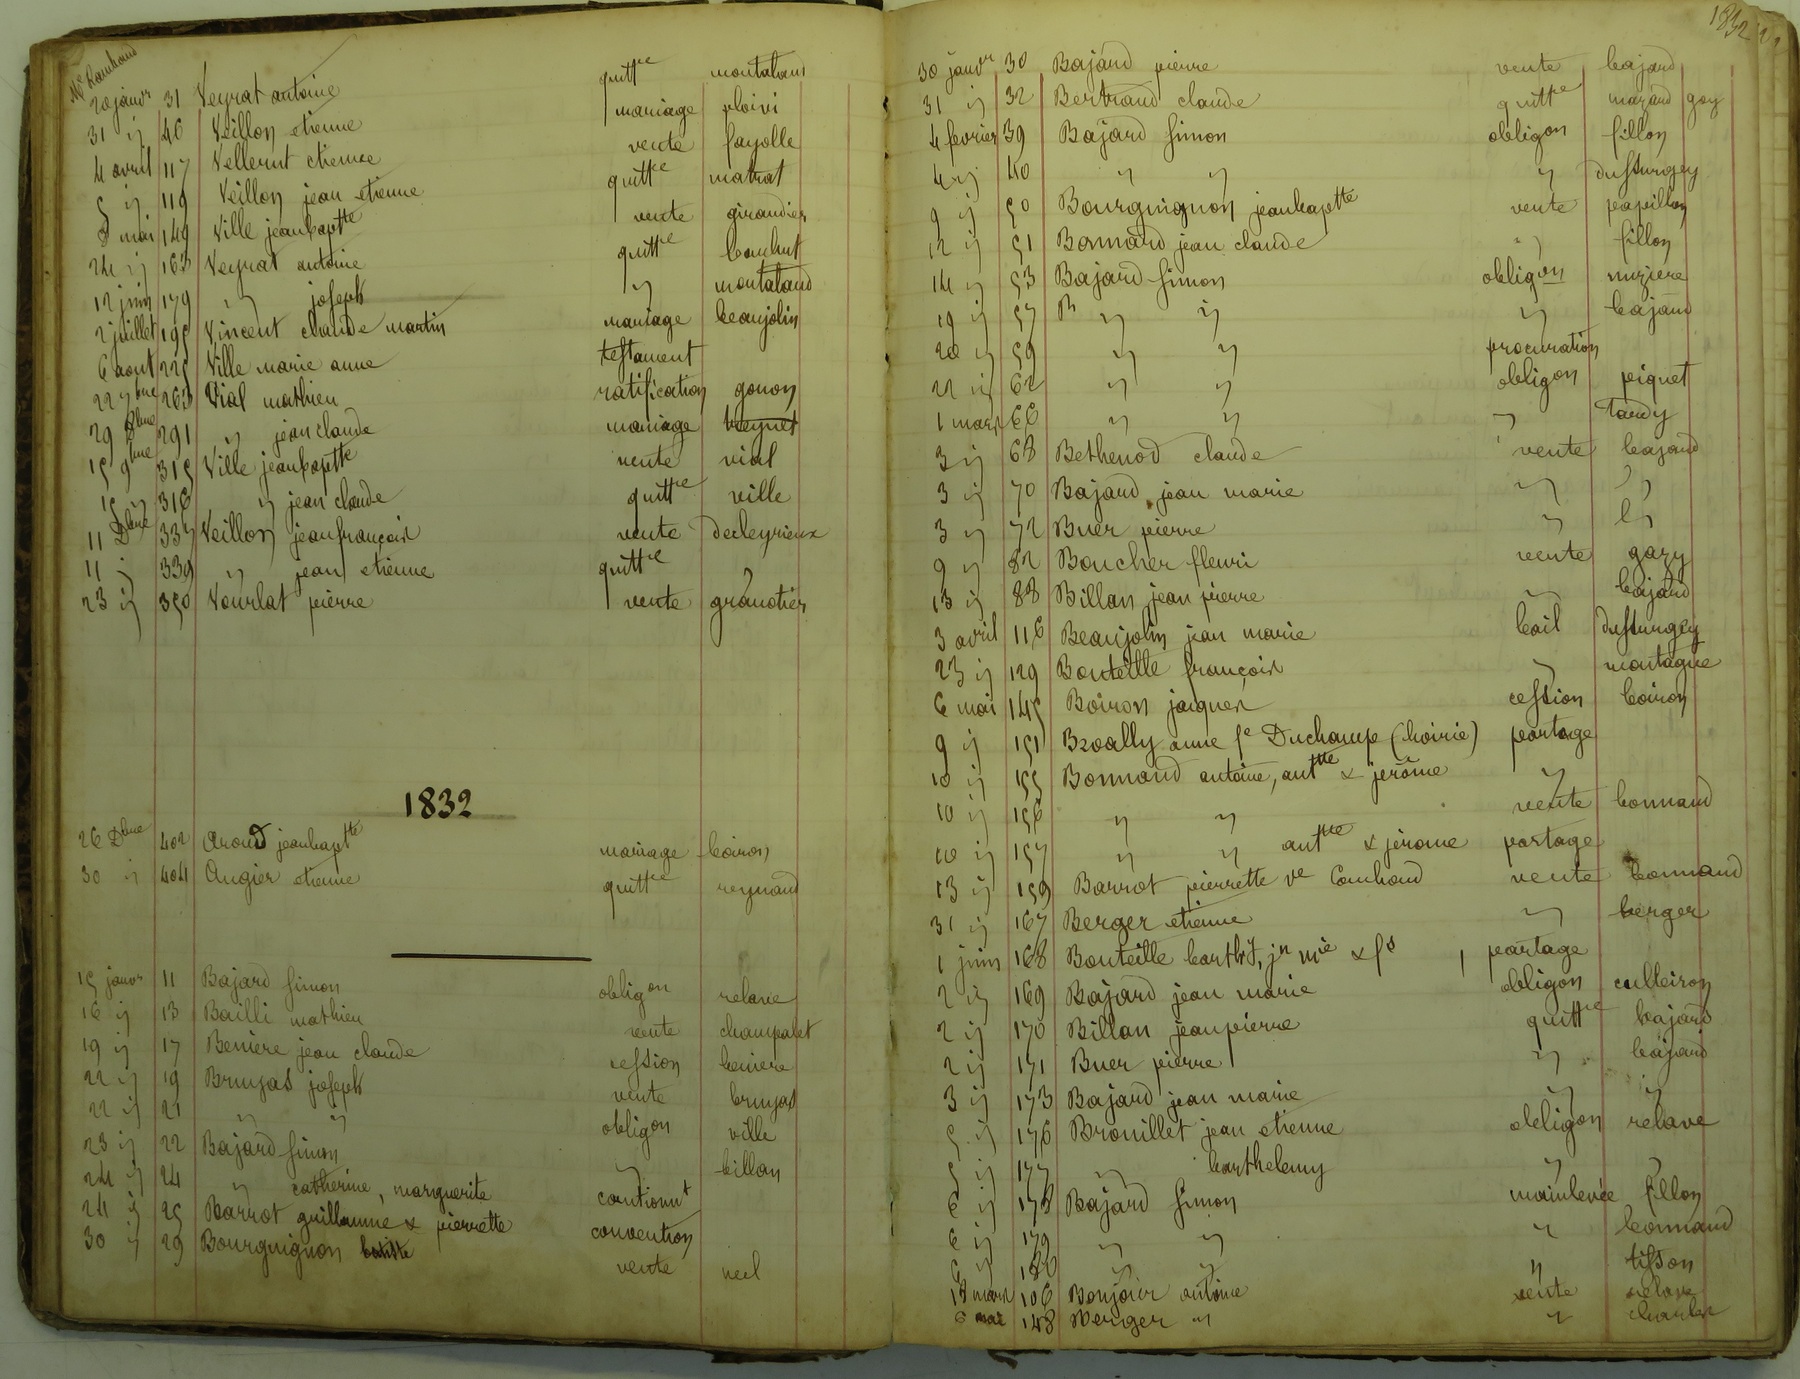 Me Rambaud
20 janvr 31 Veyrat antoine quittce montaland
31 " 46 Veillon etienne mariage ploivi
4 avril 117 Vellerut etienne vente fayolle
5 " 119 Veillon jean etienne quittce matrat
8 mai 149 Ville jeanbaptte vente giraudier
24 " 163 Veyrat antoine quittce bouchut
12 juin 179 " joseph " montaland
2 juillet 195 Vincent claude martin mariage beaujolin
6 aout 225 Ville marie anne testament
22 7bre 263 Vial mathieu ratification gonon
29 8bre 291 " jean claude mariage
15 9bre 315 Ville jeanbaptte vente vial
15 " 316 " jean claude quittce ville
11 Dbre 337 Veillon jeanfrançois vente decleyrieux
11 " 339 " jean etienne quittce "
23 " 350 Vourlat pierre vente granotier
1832
26 Dbre 402 Aroud jeanbaptte mariage boiron
30 " 404 Augier etienne quittce reynaud
15 janvr 11 Bajard simon obligon relave
16 " 13 Bailli mathieu vente champalet
19 " 17 Beniere jean claude cession beniere
22 " 19 Bruyas joseph vente bruyas
22 " 21 " " obligon ville
23 " 22 Bajard simon " billan
24 " 24 " catherine, marguerite cautionnt
24 " 25 Barrot guillaume & pierrette convention
30 " 29 Bourguignon batiste vente neel
1832
30 janvr 30 Bajard pierre vente bajard
31 " 32 Bertrand claude quittce mazard goy
4 fevrier 39 Bajard simon obligon fillon
4 " 40 " " " dussurgey
9 " 50 Bourguignon jeanbaptte vente papillon
12 " 51 Bonnard jean claude " fillon
14 " 53 Bajard simon obligon miziere
19 " 57 " " " bajard
20 " 59 " " procuration
22 " 62 " " obligon piquet
1 mars 66 " " " Tardy
3 " 68 Bethenod claude vente bajard
3 " 70 Bajard jean marie " "
3 " 72 Buer pierre " "
9 " 82 Boucher fleuri vente gazy
13 " 88 Billan jean pierre " bajard
3 avril 116 Beaujolin jean marie bail dussurgey
23 " 129 Bouteille françois " montagne
6 mai 145 Boiron jacques cession boiron
9 " 151 Broally anne fe Duchamp (hoirie) partage
10 " 155 Bonnand antoine, anttte & jerôme "
10 " 156 " " vente bonnand
10 " 157 " " anttte & jérome partage
13 " 159 Barrot pierrette ve Combaud vente bonnand
31 " 167 Berger etienne " berger
1 juin 168 Bouteille barthy, jn mie & fs partage
2 " 169 Bajard jean marie obligon culleiron
2 " 170 Billan jeanpierre quittce bajard
2 " 171 Buer pierre " bajard
3 " 173 Bajard jean marie " "
5 " 176 Brouillet jean etienne obligon relave
5 " 177 " barthelemy " "
6 " 178 Bajard simon mainlevée fillon
6 " 179 " " " bonnand
6 " 180 " " " tisson
13 mars 106 Bonjour antoine vente relave
6 mai 148 Berger " " charles